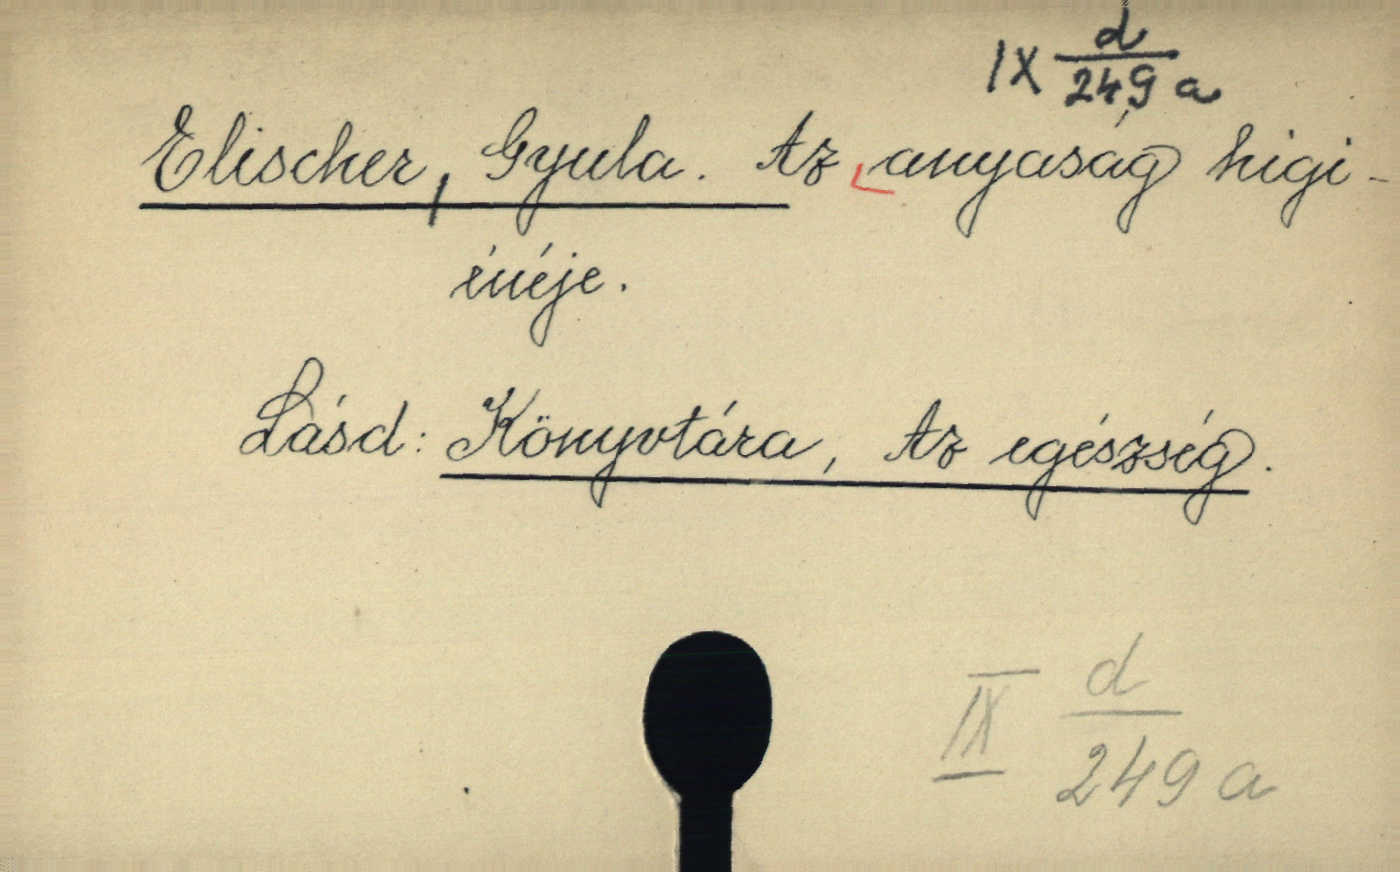 IX d/249 a
Elischer, Gyula. Az anyaság higi-
énéje.
Lásd: Könyvtára, Az egészség.
IX d/249 a